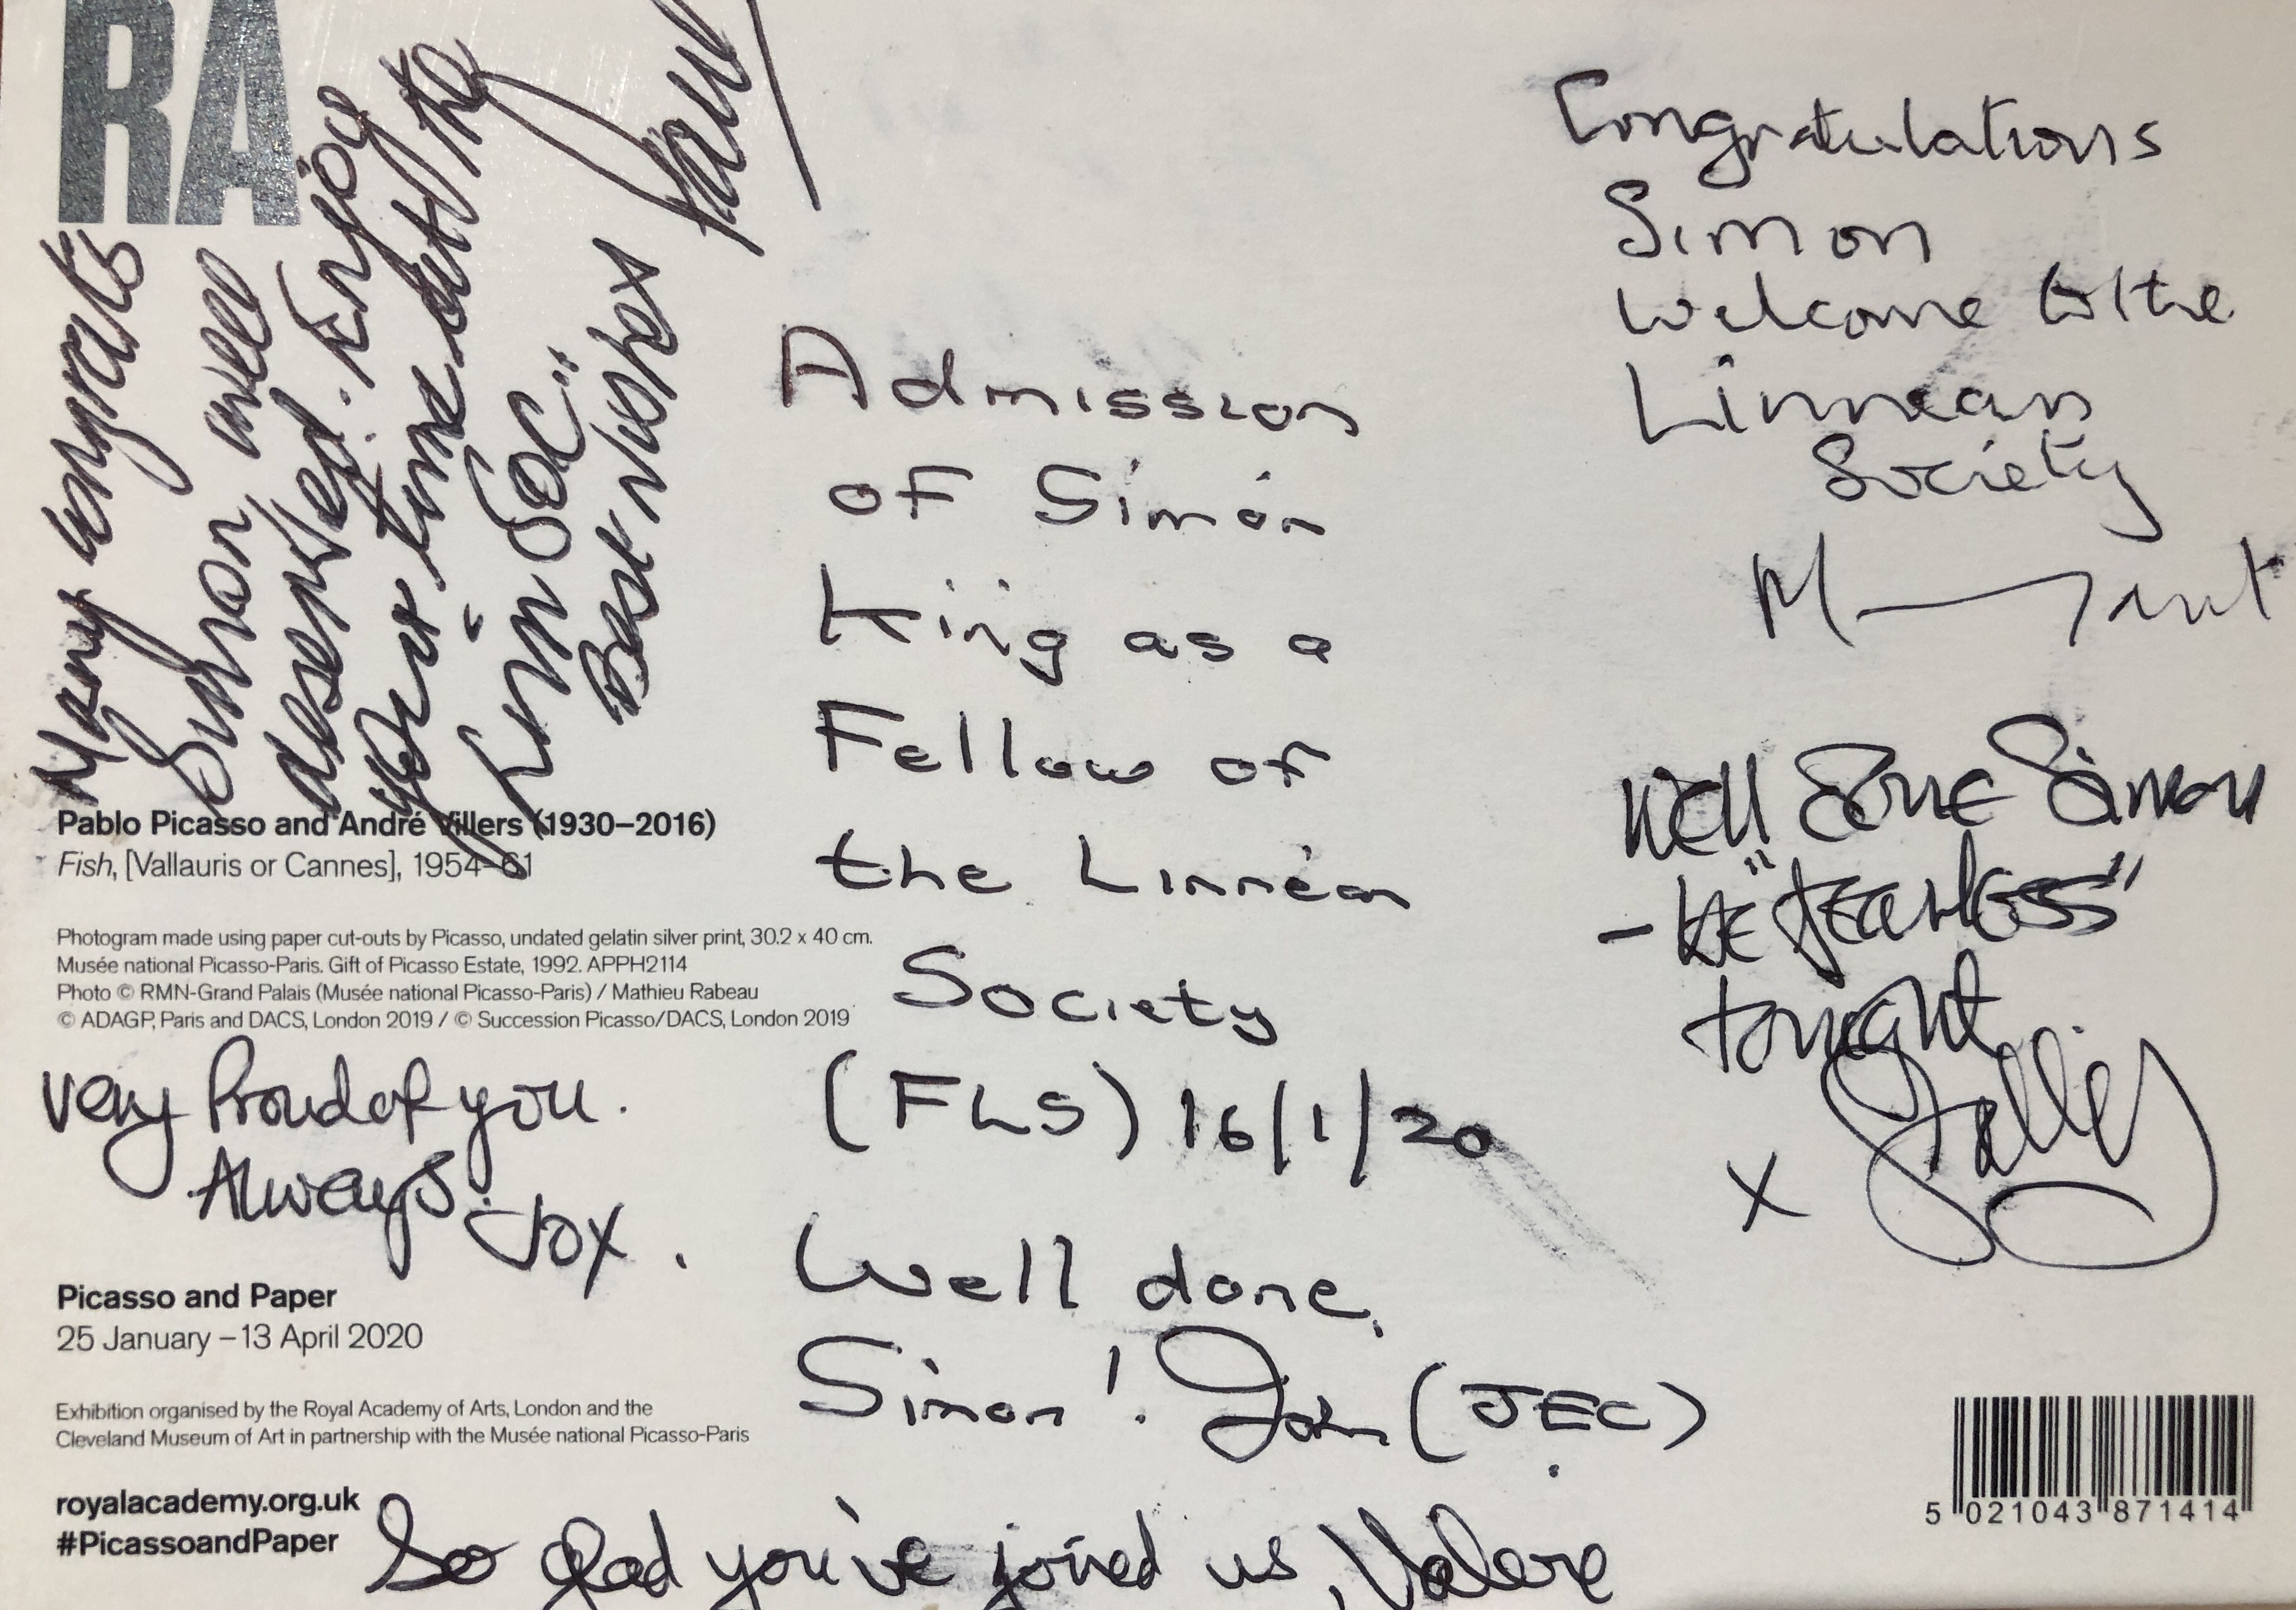 RA
Many congrats
Simon well
deserved. Enjoy
your time at the
"Linn Soc"
Best Wishes
Paul
Admission
of Simon
King as a
Fellow of
the Linnean
Society
(FLS) 16/1/20
Well done,
Simon! John (JEC)
Congratulations
Simon
Welcome to the
Linnean
Society
Well Done Simon
- BE "fEARLESS"
tonight
x Sallie
Pablo Picasso and André Villers (1930–2016)
Fish, [Vallauris or Cannes], 1954–61
Photogram made using paper cut-outs by Picasso, undated gelatin silver print, 30.2 x 40 cm.
Musée national Picasso-Paris. Gift of Picasso Estate, 1992. APPH2114
Photo © RMN-Grand Palais (Musée national Picasso-Paris) / Mathieu Rabeau
© ADAGP, Paris and DACS, London 2019 / © Succession Picasso/DACS, London 2019
Very Proud of you.
Always. Jox.
Picasso and Paper
25 January – 13 April 2020
Exhibition organised by the Royal Academy of Arts, London and the
Cleveland Museum of Art in partnership with the Musée national Picasso-Paris
royalacademy.org.uk
#PicassoandPaper
So glad you've joined us,
5 021043 871414